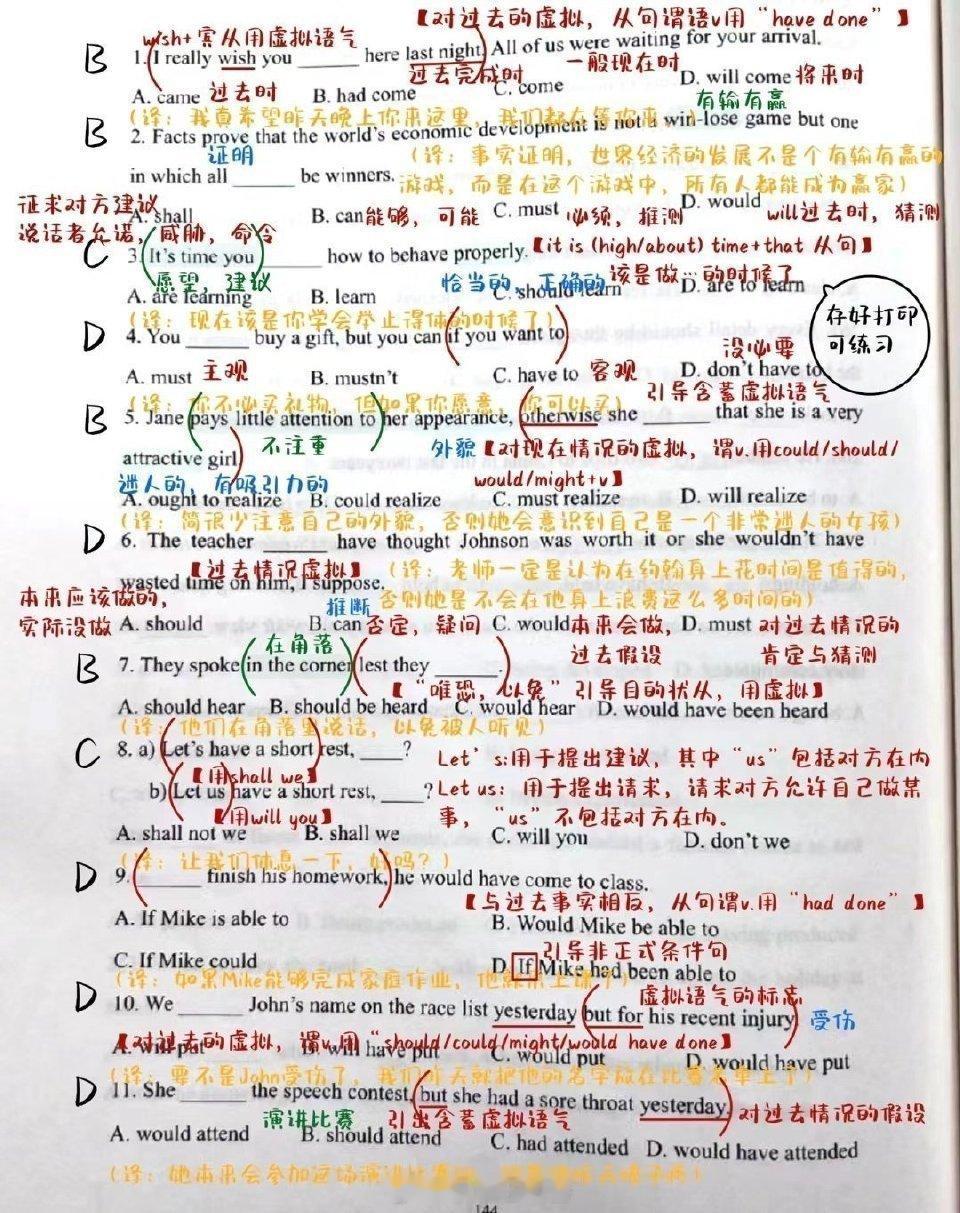 【对过去的虚拟，从句谓语v用“have done”】
wish+宾从用虚拟语气
B 1. I really wish you ______ here last night. All of us were waiting for your arrival.
过去完成时 一般现在时
A. came 过去时 B. had come C. come D. will come 将来时
有输有赢
(译：我真希望昨天晚上你来这里，我们都在等你来。)
B 2. Facts prove that the world's economic development is not a win-lose game but one
证明 (译：事实证明，世界经济的发展不是个有输有赢的
in which all ______ be winners. 游戏，而是在这个游戏中，所有人都能成为赢家)
征求对方建议
A. shall B. can 能够，可能 C. must 必须，推测 D. would will过去时，猜测
说话者允诺，威胁，命令
C 3. It's time you ______ how to behave properly. 【it is (high/about) time+that 从句】
愿望，建议 恰当的，正确的 该是做…的时候了
A. are learning B. learn C. should learn D. are to learn
存好打印
可练习
(译：现在该是你学会举止得体的时候了)
D 4. You ______ buy a gift, but you can if you want to
没必要
A. must 主观 B. mustn't C. have to 客观 D. don't have to
(译：你不必买礼物，但如果你愿意，你可以买) 引导含蓄虚拟语气
B 5. Jane pays little attention to her appearance, otherwise she ______ that she is a very
不注重 外貌 【对现在情况的虚拟，谓v.用could/should/
attractive girl
would/might+v】
迷人的，有吸引力的
A. ought to realize B. could realize C. must realize D. will realize
(译：简很少注意自己的外貌，否则她会意识到自己是一个非常迷人的女孩)
D 6. The teacher ______ have thought Johnson was worth it or she wouldn't have
【过去情况虚拟】 (译：老师一定是认为在约翰身上花时间是值得的，
wasted time on him, I suppose.
否则她是不会在他身上浪费这么多时间的)
本来应该做的， 推断
实际没做 A. should B. can 否定，疑问 C. would 本来会做， D. must 对过去情况的
过去假设 肯定与猜测
在角落
B 7. They spoke in the corner lest they ______.
【“唯恐，以免”引导目的状从，用虚拟】
A. should hear B. should be heard C. would hear D. would have been heard
(译：他们在角落里说话，以免被人听见)
C 8. a) Let's have a short rest, ____? Let's:用于提出建议，其中“us”包括对方在内
【用shall we】
b) Let us have a short rest, ____? Let us：用于提出请求，请求对方允许自己做某
【用will you】 事，“us”不包括对方在内。
A. shall not we B. shall we C. will you D. don't we
(译：让我们休息一下，好吗？)
D 9. ______ finish his homework, he would have come to class.
【与过去事实相反，从句谓v.用“had done”】
A. If Mike is able to B. Would Mike be able to
引导非正式条件句
C. If Mike could D. If Mike had been able to
(译：如果Mike能够完成家庭作业，他就来上课了)
虚拟语气的标志
D 10. We ______ John's name on the race list yesterday but for his recent injury 受伤
【对过去的虚拟，谓v.用“should/could/might/would have done】
A. will put will have put C. would put D. would have put
(译：要不是John受伤了，我们昨天就把他的名字放在比赛名单上了)
D 11. She ______ the speech contest, but she had a sore throat yesterday.
演讲比赛 引出含蓄虚拟语气 对过去情况的假设
A. would attend B. should attend C. had attended D. would have attended
(译：她本来会参加这场演讲
144